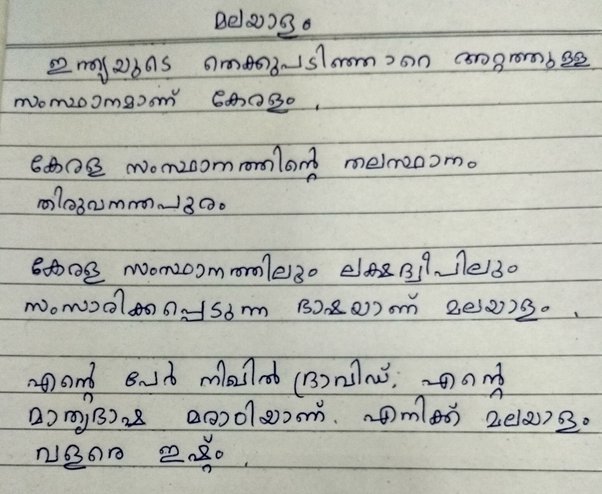 മലയാളം
ഇന്ത്യയുടെ തെക്കുപടിഞ്ഞാറെ അറ്റത്തുള്ള
സംസ്ഥാനമാണ് കേരളം .
കേരള സംസ്ഥാനത്തിന്റെ തലസ്ഥാനം
തിരുവനന്തപുരം
കേരള സംസ്ഥാനത്തിലും ലക്ഷദ്വീപിലും
സംസാരിക്കപ്പെടുന്ന ഭാഷയാണ് മലയാളം .
എന്റെ പേർ നിഖിൽ ദ്രാവിഡ്. എന്റെ
മാതൃഭാഷ മരാഠിയാണ്. എനിക്ക് മലയാളം
വളരെ ഇഷ്ടം .